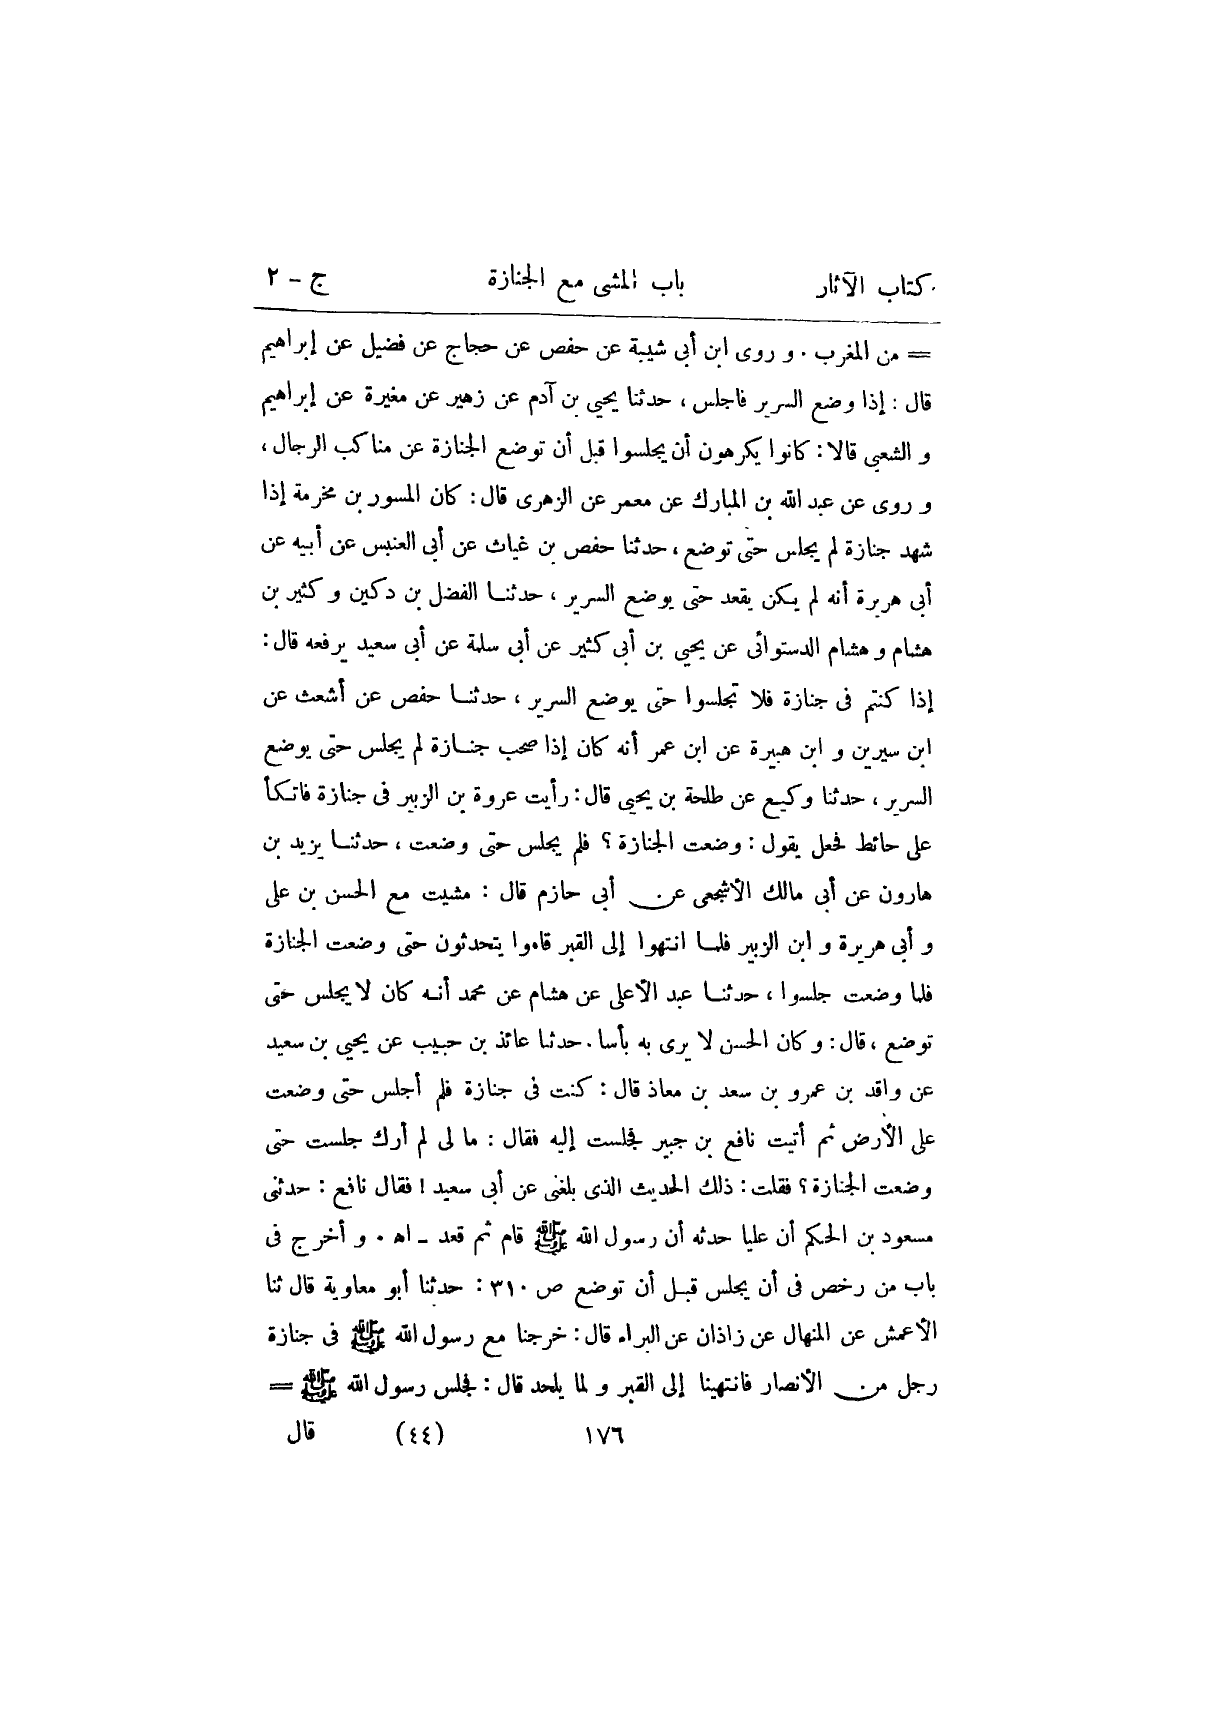 كتاب الآثار باب المشى مع الجنازة ج - ٢
= من المغرب . و روى ابن أبى شيبة عن حفص عن حجاج عن فضيل عن إبراهيم
قال : إذا وضع السرير فاجلس ، حدثنا يحيى بن آدم عن زهير عن مغيرة عن إبراهيم
و الشعبى قالا : كانوا يكرهون أن يجلسوا قبل أن توضع الجنازة عن مناكب الرجال ،
و روى عن عبد الله بن المبارك عن معمر عن الزهرى قال : كان المسور بن مخرمة إذا
شهد جنازة لم يجلس حتى توضع ، حدثنا حفص بن غياث عن أبى العنبس عن أبيه عن
أبى هريرة أنه لم يكن يقعد حتى يوضع السرير ، حدثنا الفضل بن دكين و كثير بن
هشام و هشام الدستوائى عن يحيى بن أبى كثير عن أبى سلمة عن أبى سعيد يرفعه قال :
إذا كنتم فى جنازة فلا تجلسوا حتى يوضع السرير ، حدثنا حفص عن أشعث عن
ابن سيرين و ابن هبيرة عن ابن عمر أنه كان إذا صحب جنازة لم يجلس حتى يوضع
السرير ، حدثنا وكيع عن طلحة بن يحيى قال : رأيت عروة بن الزبير فى جنازة فاتكأ
على حائط فجعل يقول : وضعت الجنازة ؟ فلم يجلس حتى وضعت ، حدثنا يزيد بن
هارون عن أبى مالك الأشجعى عن أبى حازم قال : مشيت مع الحسن بن على
و أبى هريرة و ابن الزبير فلما انتهوا إلى القبر قاموا يتحدثون حتى وضعت الجنازة
فلما وضعت جلسوا ، حدثنا عبد الأعلى عن هشام عن محمد أنه كان لا يجلس حتى
توضع ، قال : و كان الحسن لا يرى به بأسا . حدثنا عائذ بن حبيب عن يحيى بن سعيد
عن واقد بن عمرو بن سعد بن معاذ قال : كنت فى جنازة فلم أجلس حتى وضعت
على الأرض ثم أتيت نافع بن جبير فجلست إليه فقال : ما لى لم أرك جلست حتى
وضعت الجنازة ؟ فقلت : ذلك الحديث الذى بلغنى عن أبى سعيد ! فقال نافع : حدثنى
مسعود بن الحكم أن عليا حدثه أن رسول الله ﷺ قام ثم قعد - اه . و أخرج فى
باب من رخص فى أن يجلس قبل أن توضع ص ٣١٠ : حدثنا أبو معاوية قال ثنا
الأعمش عن المنهال عن زاذان عن البراء قال : خرجنا مع رسول الله ﷺ فى جنازة
رجل من الأنصار فانتهينا إلى القبر و لما يلحد قال : فجلس رسول الله ﷺ =
١٧٦ (٤٤) قال